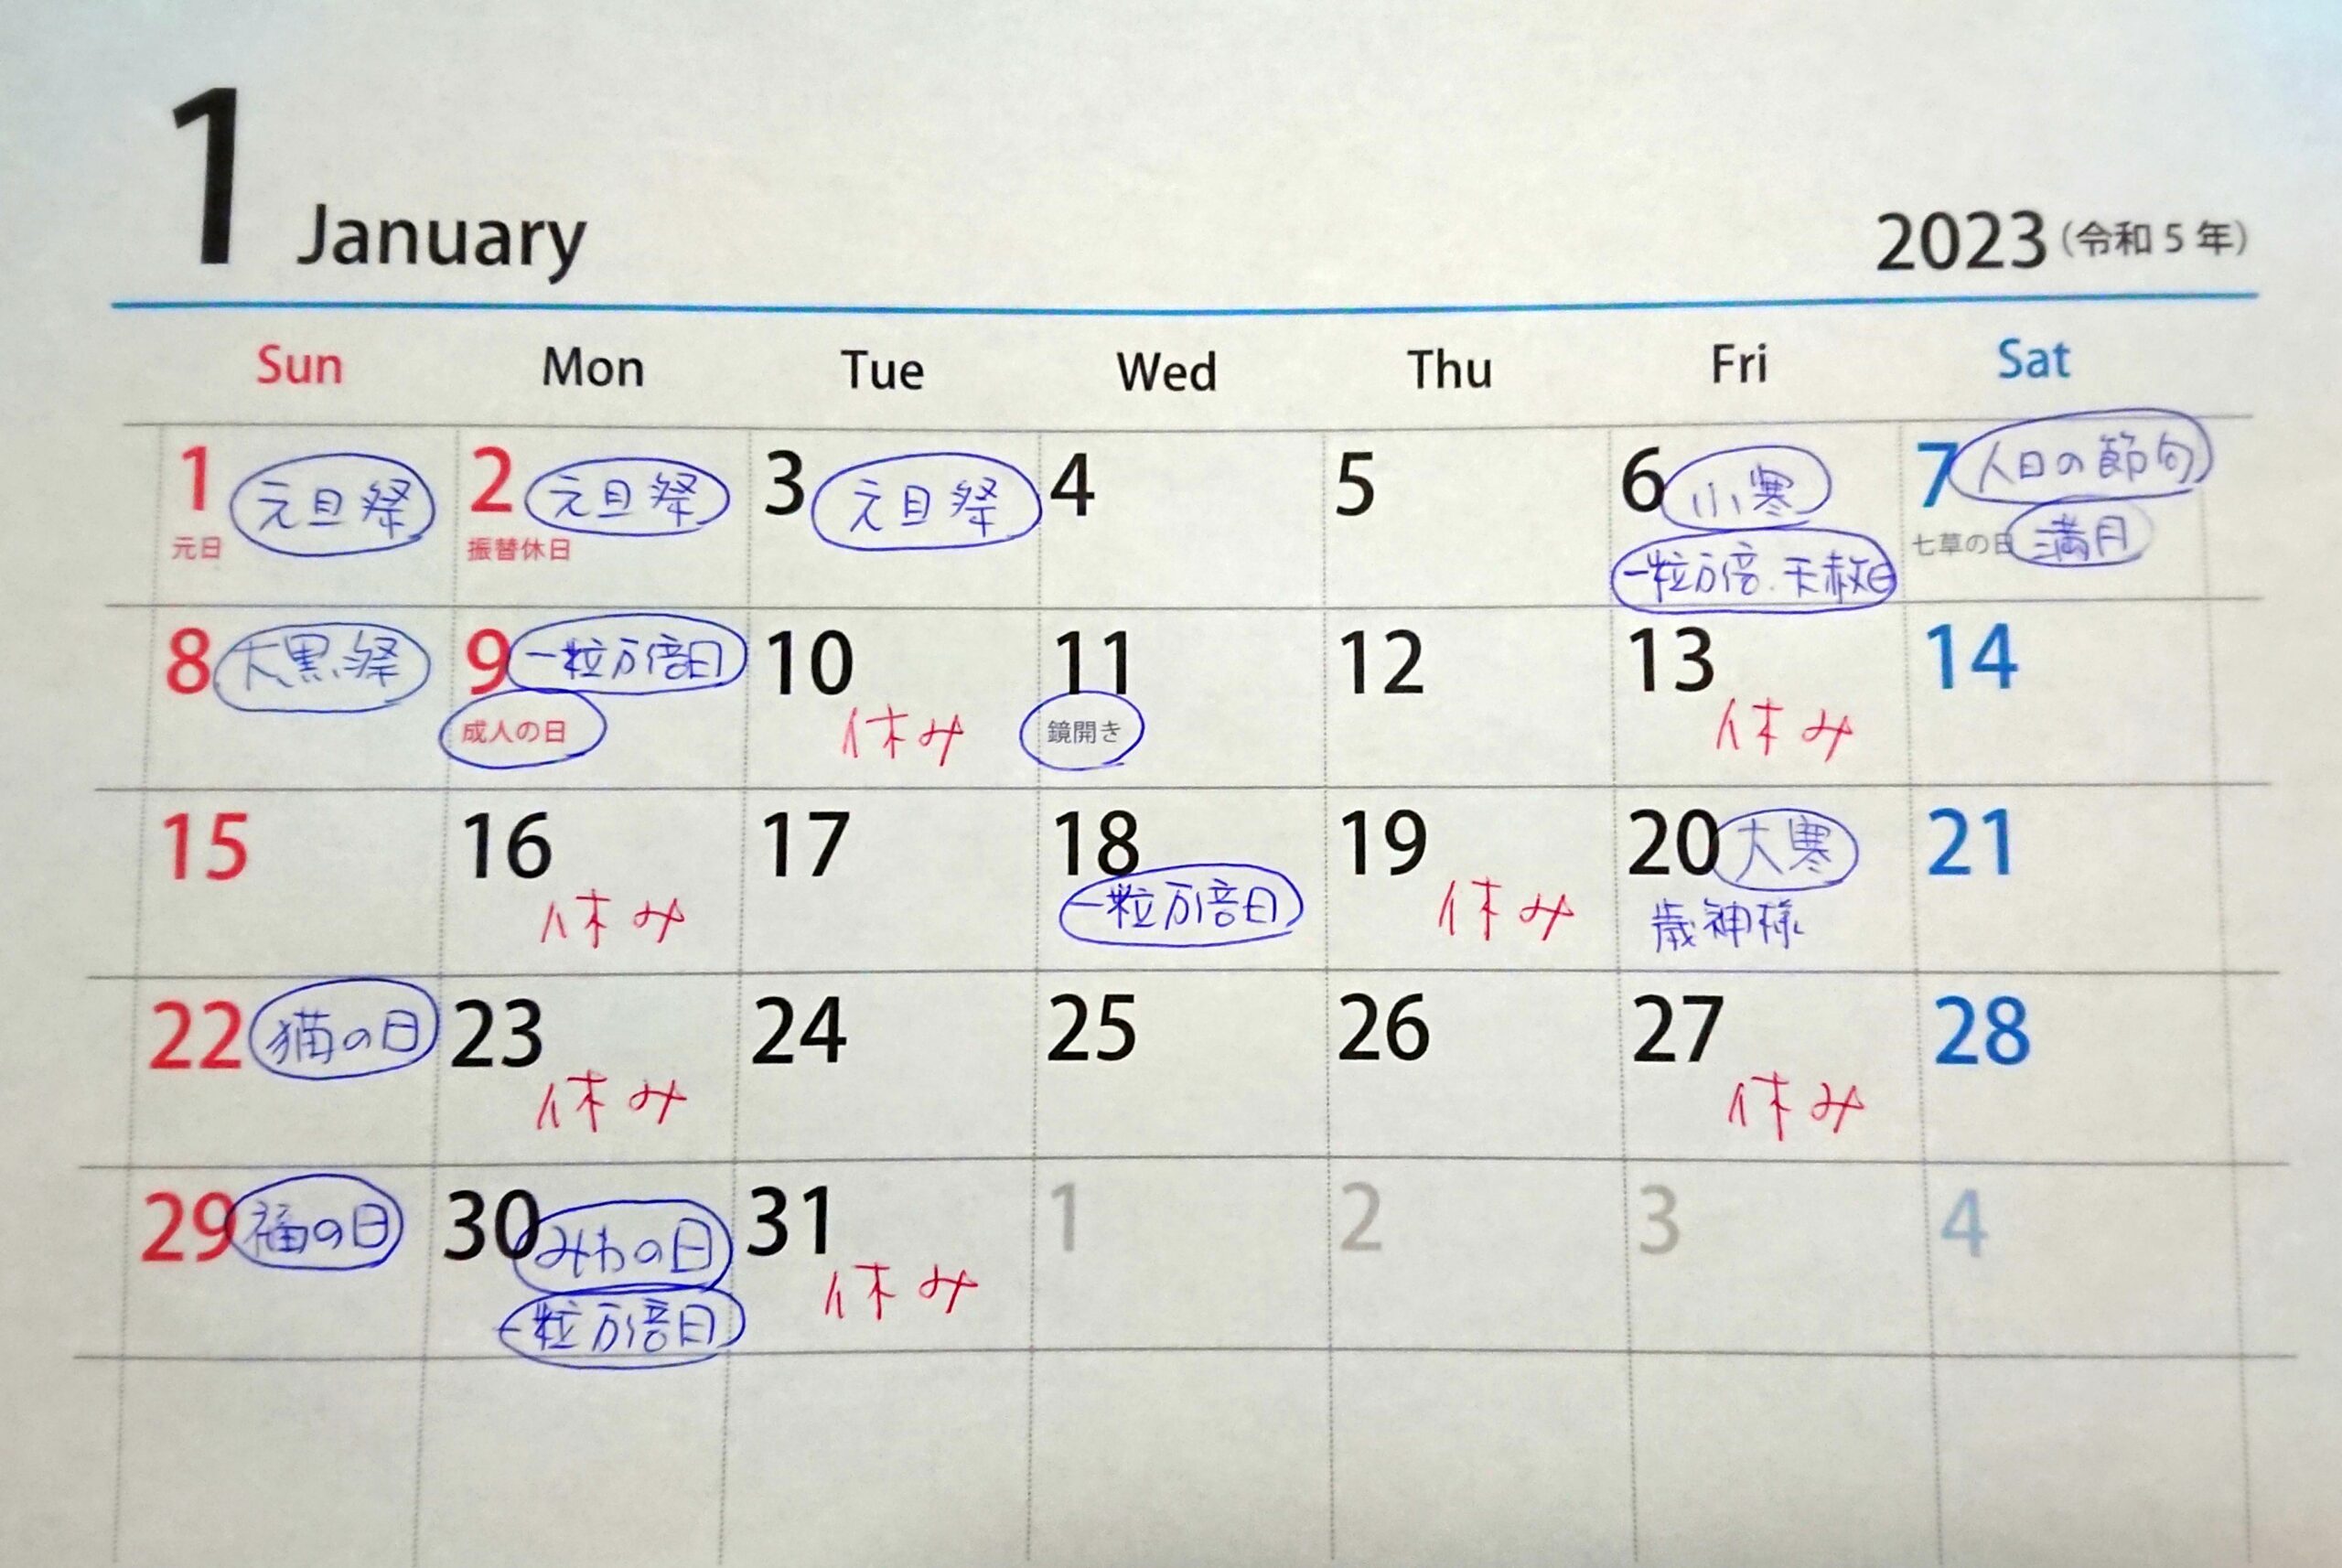 1 January
2023（令和5年）
Sun Mon Tue Wed Thu Fri Sat
1 元旦祭 2 元旦祭 3 元旦祭 4 5 6 小寒 7 人日の節句
元日 振替休日 一粒万倍.天赦日 七草の日 満月
8 大黒祭 9 一粒万倍日 10 11 12 13 14
成人の日 休み 鏡開き 休み
15 16 17 18 19 20 大寒 21
休み 一粒万倍日 休み 歳神様
22 猫の日 23 24 25 26 27 28
休み 休み
29 福の日 30 みわの日 31 1 2 3 4
一粒万倍日 休み